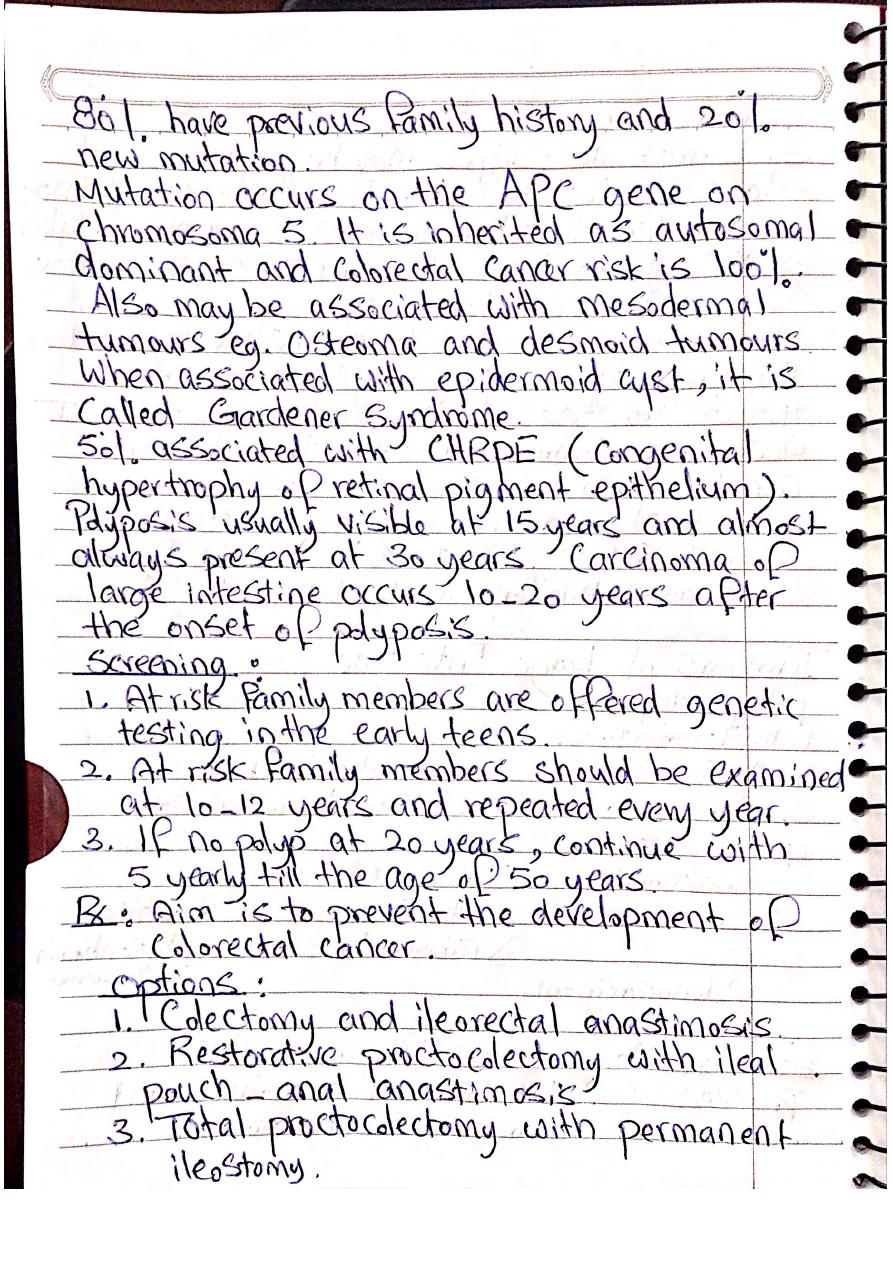 80%. have previous family history and 20%.
new mutation.
Mutation occurs on the APC gene on
chromosoma 5. It is inherited as autosomal
dominant and colorectal cancer risk is 100%.
Also may be associated with mesodermal
tumours eg. Osteoma and desmoid tumours
When associated with epidermoid cyst, it is
Called Gardener Syndrome.
50%. associated with CHRPE (congenital
hypertrophy of retinal pigment epithelium).
Polyposis usually visible at 15 years and almost
always present at 30 years. Carcinoma of
large intestine occurs 10-20 years after
the onset of polyposis.
Screening :
1. At risk family members are offered genetic
testing in the early teens.
2. At risk family members should be examined
at 10-12 years and repeated every year.
3. If no polyp at 20 years, continue with
5 yearly till the age of 50 years.
Rx : Aim is to prevent the development of
Colorectal cancer.
Options :
1. Colectomy and ileorectal anastimosis.
2. Restorative proctocolectomy with ileal
pouch - anal anastimosis
3. Total proctocolectomy with permanent
ileostomy.